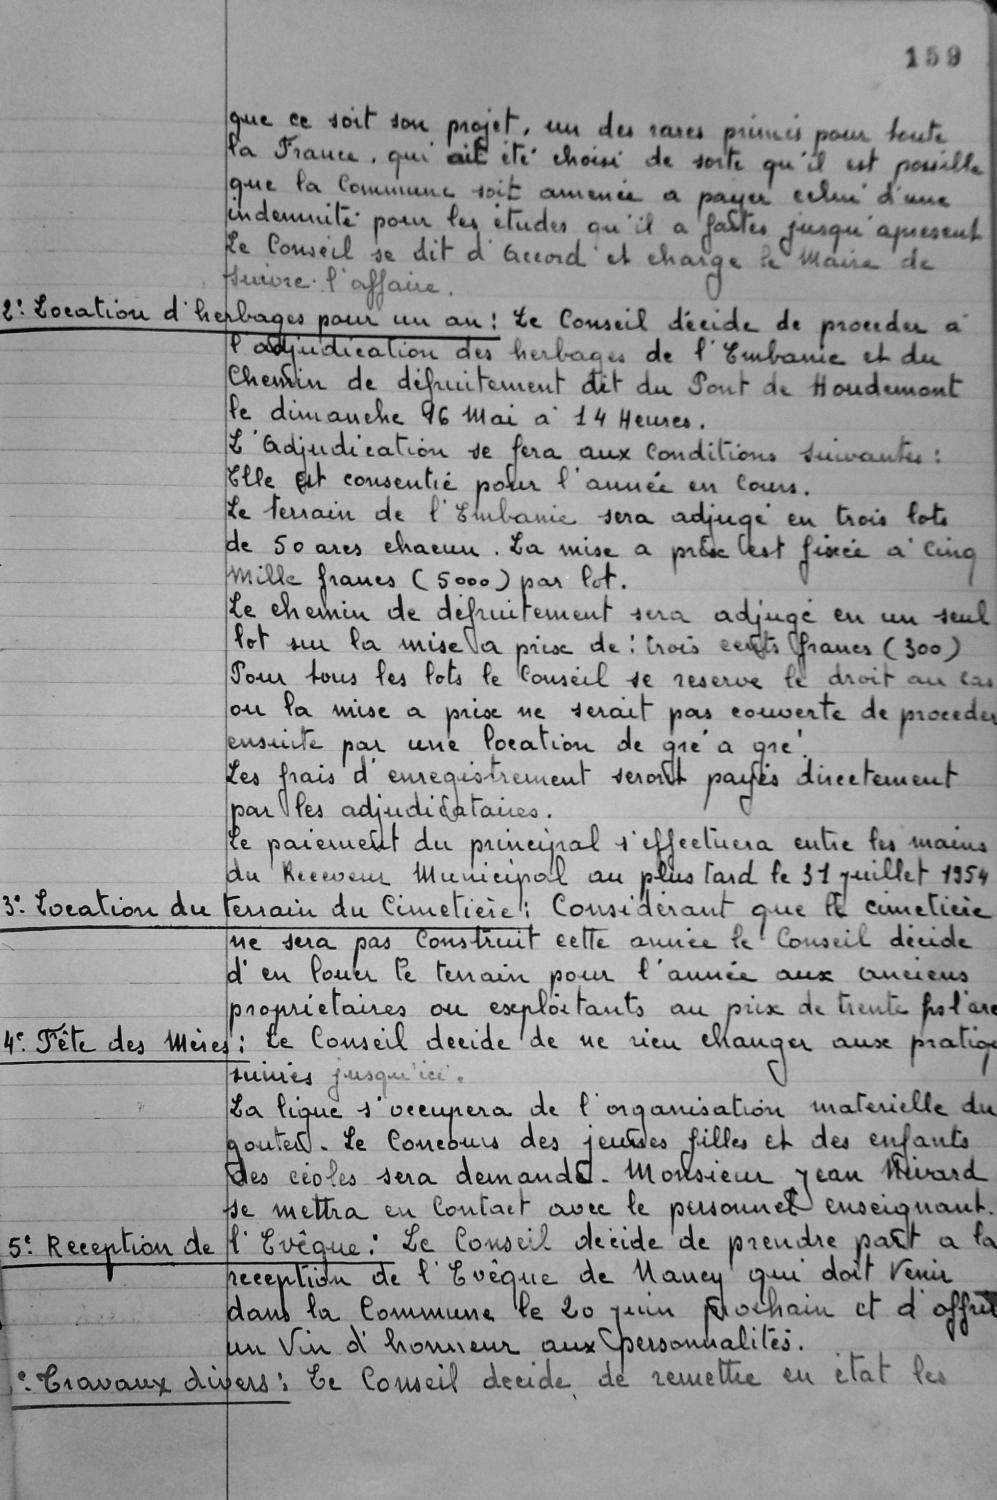 159
que ce soit son projet, un des rares primés pour toute
la France, qui ait été choisi de sorte qu'il est possible
que la Commune soit amenée a payer celui d'une
indemnité pour les études qu'il a faites jusqu'apresent
Le Conseil se dit d'Accord et charge le Maire de
suivre l'affaire.
2: Location d'herbages pour un an: Le Conseil décide de proceder à
l'adjudication des herbages de l'Embanie et du
Chemin de défruitement dit du Pont de Houdemont
le dimanche 16 Mai à 14 Heures.
L'Adjudication se fera aux Conditions suivantes:
Elle est consentie pour l'année en Cours.
Le terrain de l'Embanie sera adjugé en trois lots
de 50 ares chacun. La mise a prix est fixée à Cinq
Mille francs (5000) par lot.
Le chemin de défruitement sera adjugé en un seul
lot sur la mise a prix de: trois cents francs (300)
Pour tous les lots le Conseil se reserve le droit au cas
ou la mise a prix ne serait pas couverte de proceder
ensuite par une location de gré a gré.
Les frais d'enregistrement seront payés directement
par les adjudicataires.
Le paiement du principal s'effectuera entre les mains
du Receveur Municipal au plus tard le 31 juillet 1954
3: Location du terrain du Cimetière: Considérant que le cimetière
ne sera pas Construit cette année le Conseil décide
d'en louer le terrain pour l'année aux anciens
propriétaires ou exploitants au prix de trente frs l'are
4: Fête des Mères: Le Conseil decide de ne rien changer aux pratiq
suivies jusqu'ici.
La ligue s'occupera de l'organisation materielle du
gouter. Le Concours des jeunes filles et des enfants
des écoles sera demandé. Monsieur Jean
se mettra en Contact avec le personnel enseignant.
5: Reception de l'Evêque: Le Conseil décide de prendre part a la
reception de l'Evêque de Nancy qui doit Venir
dans la Commune le 20 juin prochain et d'offrir
un Vin d'honneur aux personnalités.
: Travaux divers: Le Conseil decide de remettre en état les